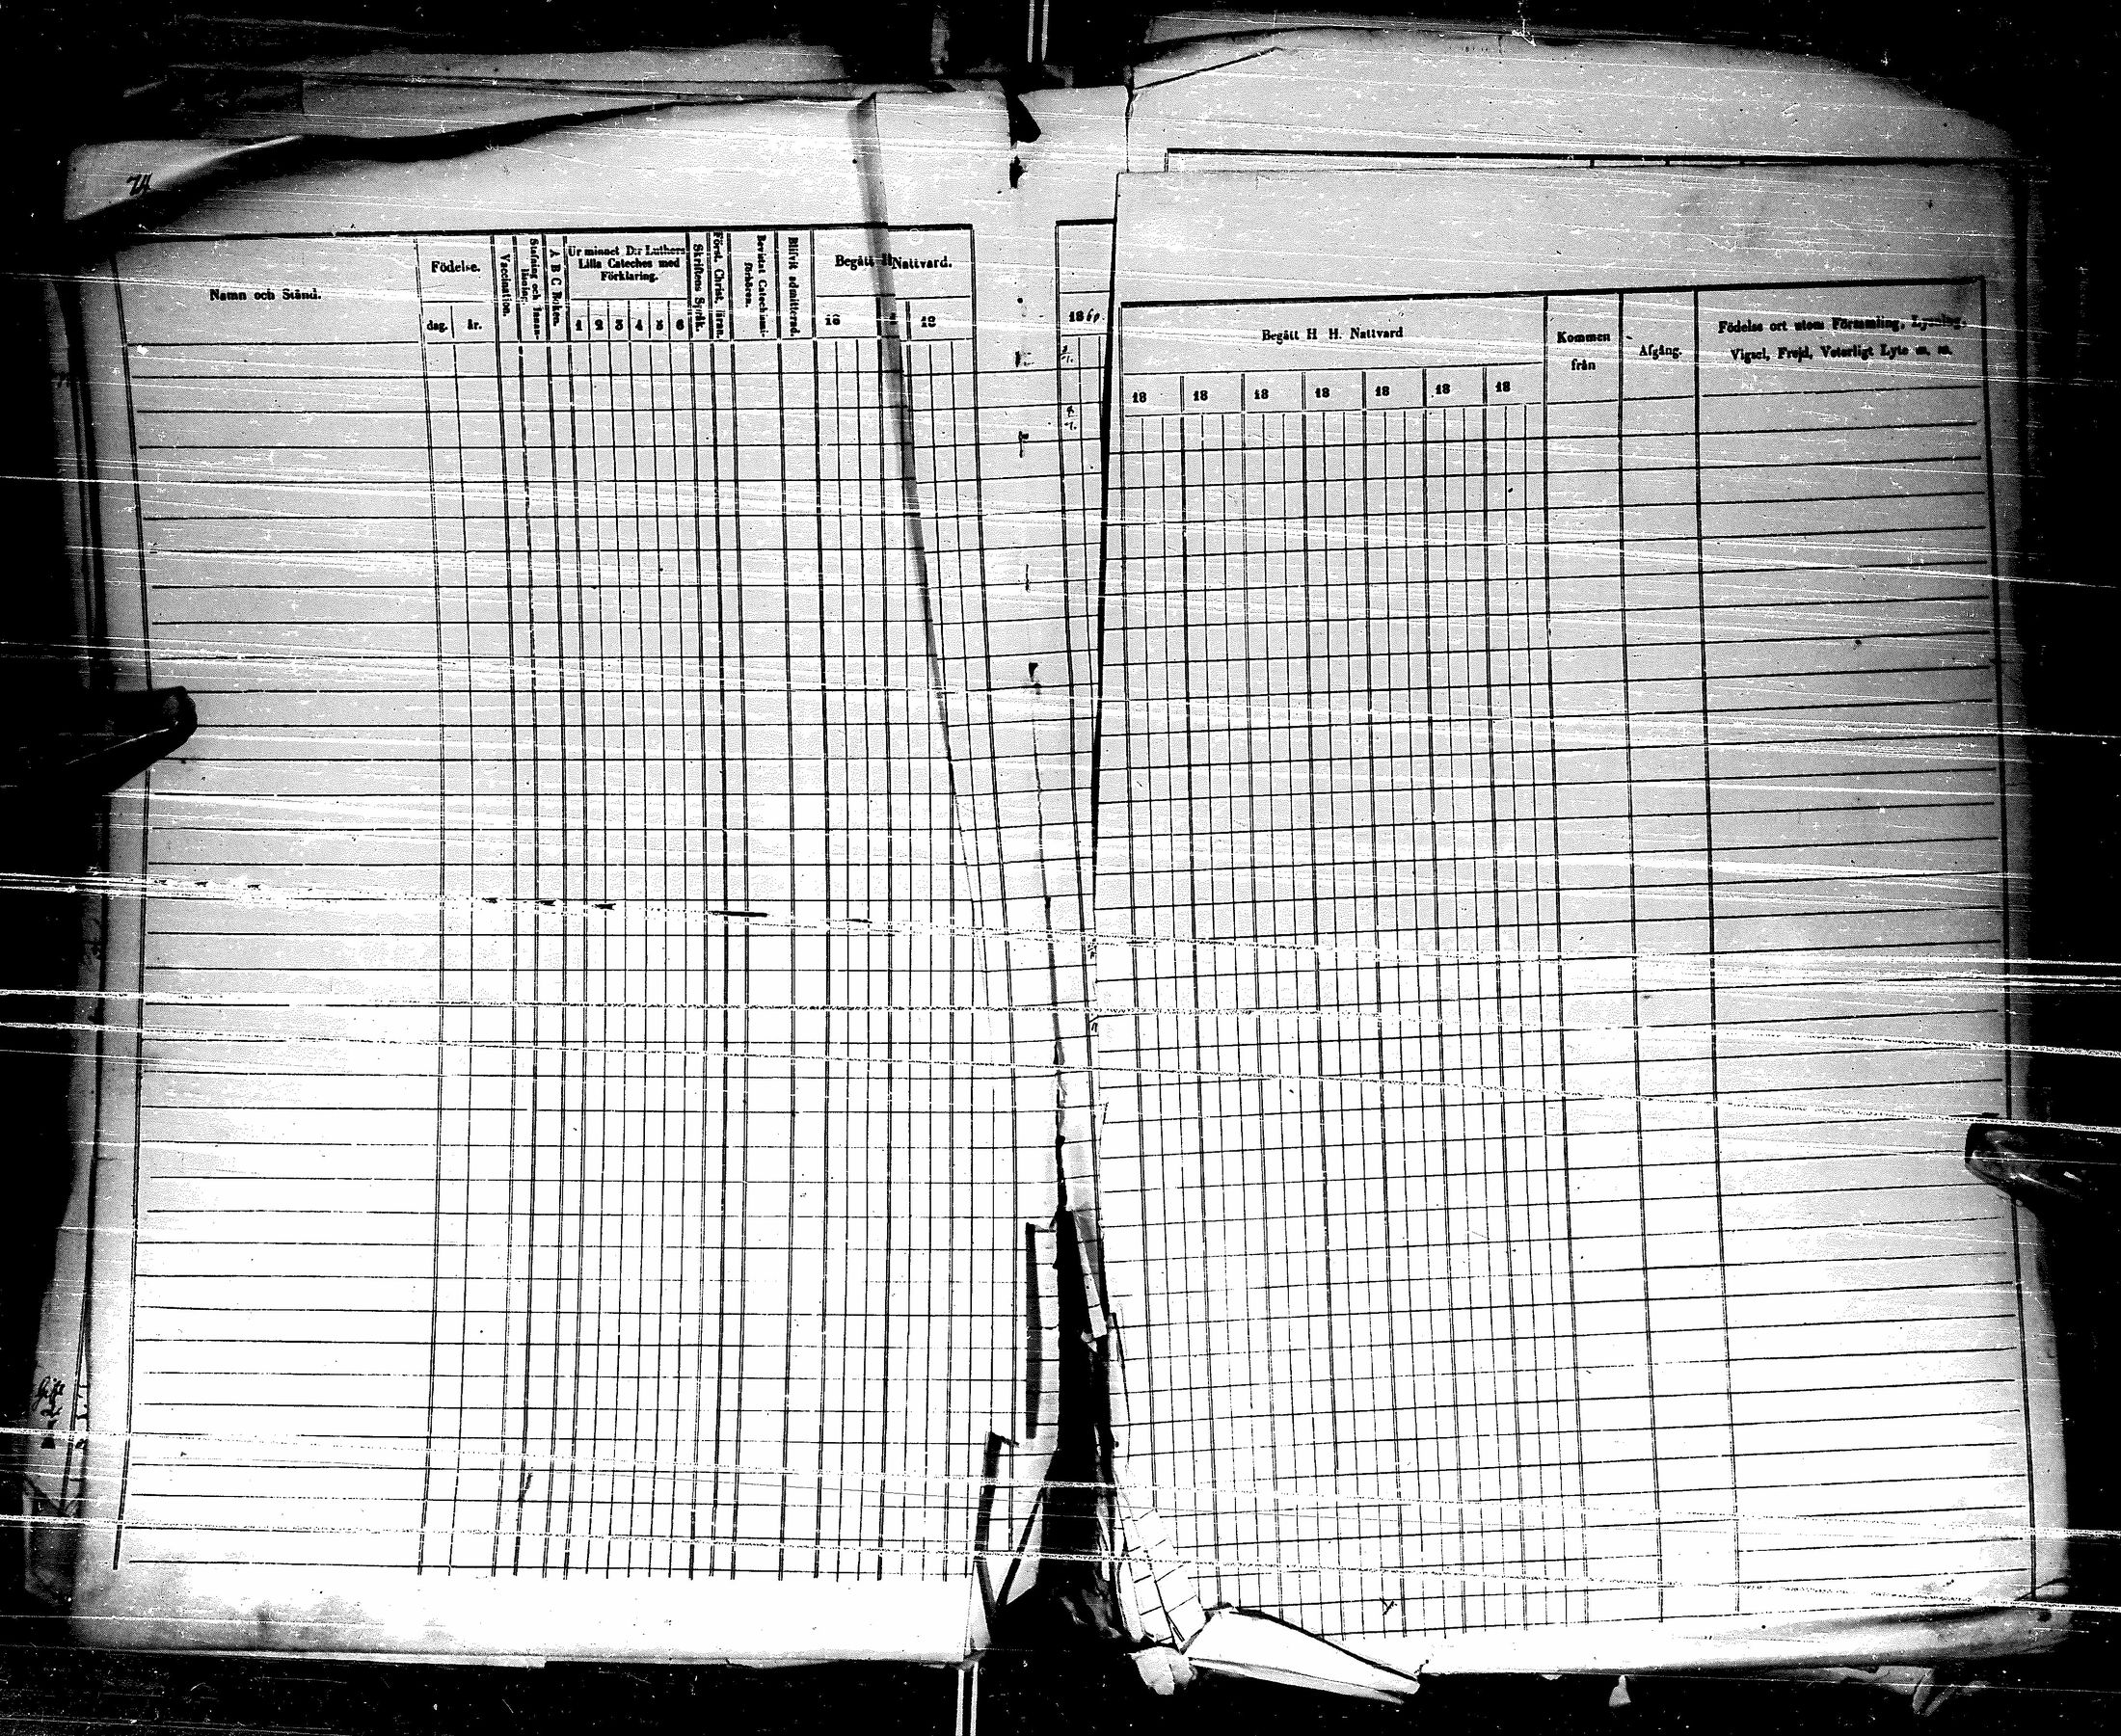 74
Namn och Stånd.
Födelse.
dag.
år.
Vaccination.
Stafning och Innan-
läsning.
A B C Boken.
Ur minnet D:r Luthers
Lilla Cateches med
Förklaring.
1 2 3 4 5 6
Skriftens Språk.
Först. Christ. läran.
Bevistat Catechismi-
förhören.
Blifvit admitterad.
Begått H Nattvard.
18
18
18
Begått H H. Nattvard
18 18 18 18 18 18 18
Kommen
från
Afgång.
Födelse ort utom Församling, Lysning,
Vigsel, Frejd, Veterligt Lyte m. m.